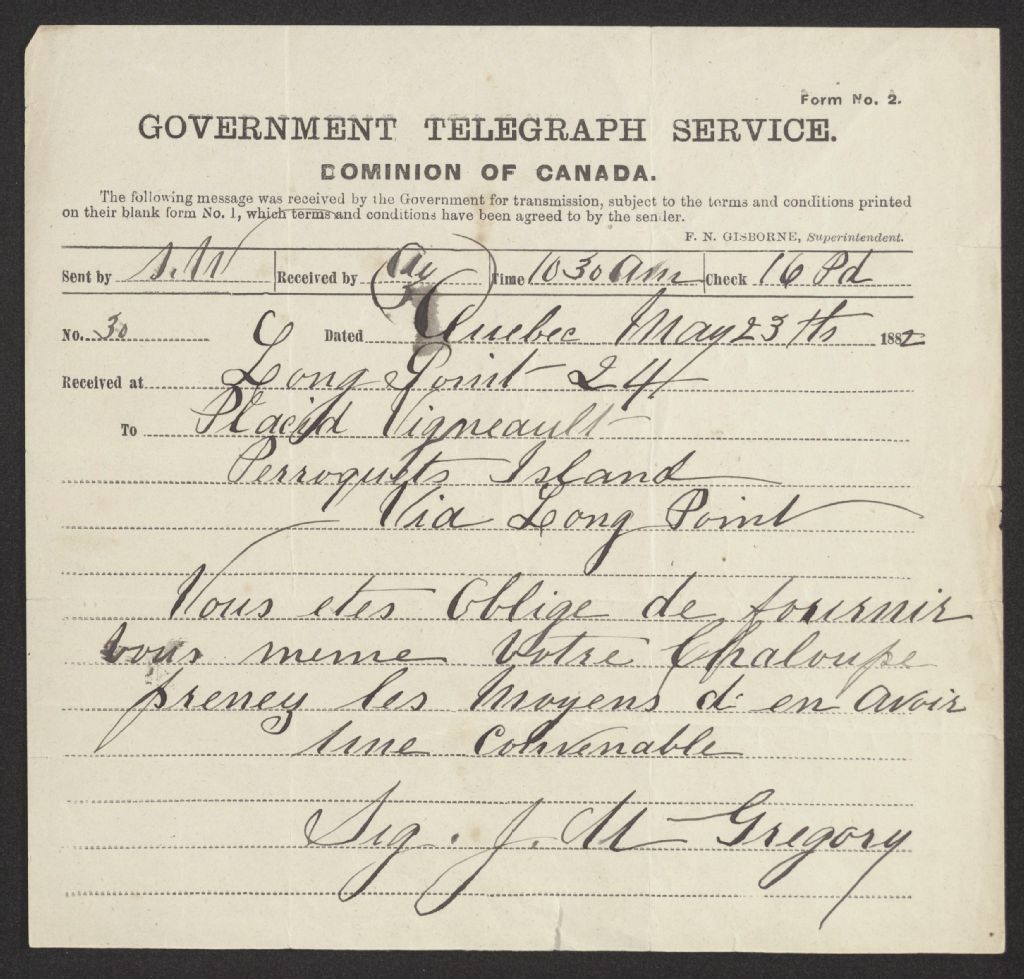 Form No. 2.
GOVERNMENT TELEGRAPH SERVICE.
DOMINION OF CANADA.
The following message was received by the Government for transmission, subject to the terms and conditions printed
on their blank form No. 1, which terms and conditions have been agreed to by the sender.
F. N. GISBORNE, Superintendent.
Sent by Received by Time 10 30 am Check 16 Pd
No. 30 Dated Quebec May 23th 1882
Received at Long Point 24
To Placid Vigneault
Perroquets Island
Via Long Point
Vous etes Oblige de fournir
vous meme Votre Chaloupe
prenez les Moyens d'en avoir
une Convenable
Sig. J. U Gregory